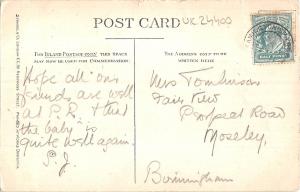 POST CARD
UK24400
THE INLAND POSTAGE ONLY THIS SPACE
MAY NOW BE USED FOR COMMUNICATION.
THE ADDRESS ONLY TO BE
WRITTEN HERE
HALF PENNY
Hope all our
friends are well
at P.R. & that
the baby is
quite well again.
Mrs Tomkinson
Fair View
Prospect Road
Moseley,
Birmingham